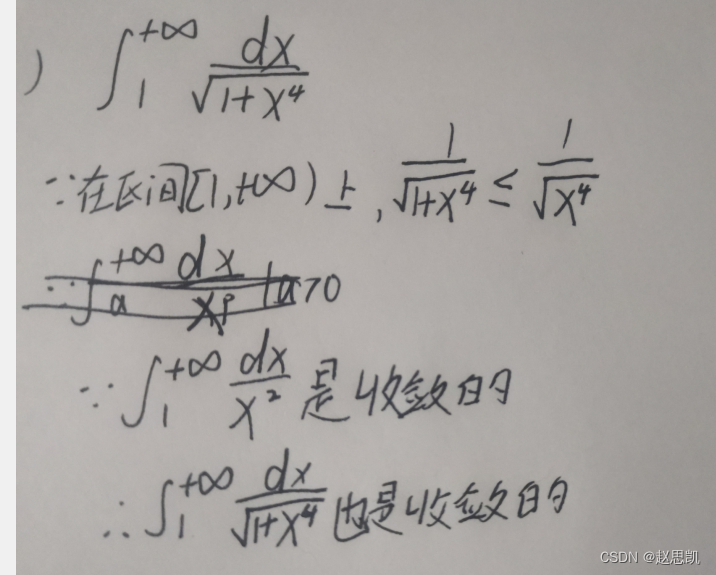 ) ∫₁^{+∞} dx/√(1+x⁴)
∵在区间[1,+∞)上, 1/√(1+x⁴) ≤ 1/√(x⁴)
∵∫ₐ^{+∞} dx/xᵖ (a>0
∵∫₁^{+∞} dx/x² 是收敛的
∴∫₁^{+∞} dx/√(1+x⁴) 也是收敛的
CSDN @赵思凯